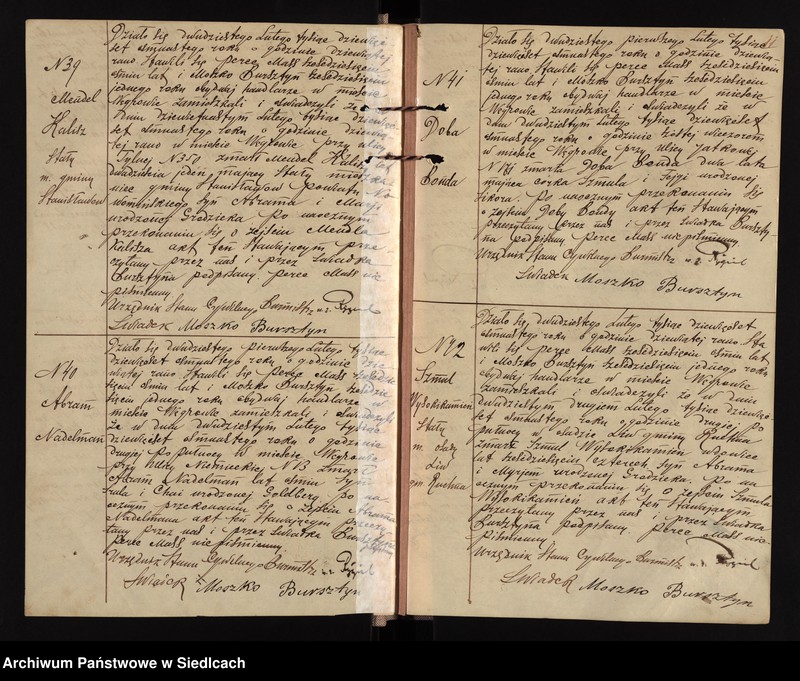 N39
Mendel
Kalisz
Stały
m. gminy
Stanisławów
Działo się dwudziestego Lutego tysiąc dziewięć
set ósmnastego roku o godzinie dziewiątej
rano Stawili się Perec Mass sześdziesięciu
ośmiu lat i Moszko Bursztyn sześdziesięciu
jednego roku obydwaj handlarze w mieście
Węgrowie zamieszkali i oświadczyli że w
dniu dziewiętnastym Lutego tysiąc dziewięćset
ósmnastego roku o godzinie dziewią
tej rano w mieście Węgrowie przy ulicy
Tylnej N350 zmarł Mendel Kalisz lat
dwadzieścia jeden mający Stały mieszka
niec gminy Stanisławów Powiatu No
womińskiego Syn Abrama i Maryi
urodzonej Grodzieka. Po naocznym
przekonaniu się o zejściu Mendla
Kalisza akt ten Stawającym prze
czytany przez nas i przez świadka
Bursztyna podpisany. Perec Mass nie
piśmienny
Urzędnik Stanu Cywilnego Burmistrz
Świadek Moszko Bursztyn
N40
Abram
Nadelman
Działo się dwudziestego pierwszego Lutego tysiąc
dziewięćset ósmnastego roku o godzinie dzie
wiątej rano Stawili się Perec Mass sześdzie
sięciu ośmiu lat i Moszko Bursztyn sześdzie
sięciu jednego roku obydwaj handlarze w
mieście Węgrowie zamieszkali i oświadczyli
że w dniu dwudziestym Lutego tysiąc
dziewięćset ósmnastego roku o godzinie
drugiej po południu w mieście Węgrowie
przy Ulicy Niemieckiej N13 zmarł
Abram Nadelman lat ośm Syn
i Chai urodzonej Goldberg. Po na
ocznym przekonaniu się o zejściu Abrama
Nadelmana akt ten Stawającym przeczy
tany przez nas i przez świadka Bursztyna
Perec Mass nie piśmienny
Urzędnik Stanu Cywilnego Burmistrz
Świadek Moszko Bursztyn
N41
Doba
Bonda
Działo się dwudziestego pierwszego Lutego tysiąc
dziewięćset ósmnastego roku o godzinie dziewią
tej rano Stawili się Perec Mass sześdziesięciu
ośmiu lat i Moszko Bursztyn sześdziesięciu
jednego roku obydwaj handlarze w mieście
Węgrowie zamieszkali i oświadczyli że w
dniu dwudziestym Lutego tysiąc dziewięćset
ósmnastego roku o godzinie szóstej wieczorem
w mieście Węgrowie przy Ulicy Jatkowej
zmarła Doba Bonda dwa lata
mająca córka Szmula i Fejgi urodzonej
Sikora. Po naocznym przekonaniu się
o zejściu Doby Bondy akt ten Stawającym
przeczytany przez nas i przez świadka Burszty
na podpisany Perec Mass nie piśmienny
Urzędnik Stanu Cywilnego Burmistrz
Świadek Moszko Bursztyn
N42
Szmul
Wysokikamień
Stały
m. osady
Liw
gm. Ruchna
Działo się dwudziestego Lutego tysiąc dziewięćset
ósmnastego roku o godzinie dziewiątej rano Sta
wili się Perec Mass sześdziesięciu ośmiu lat
i Moszko Bursztyn sześdziesięciu jednego roku
obydwaj handlarze w mieście Węgrowie
zamieszkali i oświadczyli że w dniu
dwudziestym drugiem Lutego tysiąc dziewięć
set ósmnastego roku o godzinie drugiej po
południu w osadzie Liw gminy Ruchna
zmarł Szmul Wysokikamień wdowiec
lat sześdziesięciu czterech Syn Abrama
i urodzonej Grodzieka. Po na
ocznym przekonaniu się o zejściu Szmula
Wysokikamień akt ten Stawającym
przeczytany przez nas i przez świadka
Bursztyna podpisany. Perec Mass nie
piśmienny
Urzędnik Stanu Cywilnego Burmistrz
Świadek Moszko Bursztyn
Archiwum Państwowe w Siedlcach